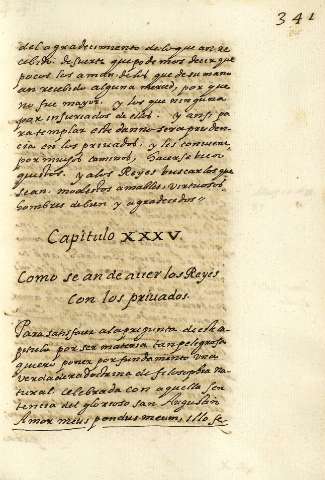 341
del agradecimiento de lo que an re
cebido. de suerte que podemos decir que
pocos los aman, de los que de su mano
an recebido alguna merced, por que
no fue mayor. y los que ninguna
van injuriados de ellos. y ansi pa
ra templar este danno sera pruden
cia en los privados. y les conviene
por muchos caminos, hacerse bien
quistos. y a los Reyes buscar los que
sean modestos amables, virtuosos
hombres de bien y agradecidos
Capitulo XXXV.
Como se an de aver los Reyes
con los privados.
Para satisfacer a la pregunta deste ca
pitulo por ser materia tan peligrosa
quiero poner por fundamento una
verdadera dotrina de filosophia na
tural celebrada con aquella sen
tencia del glorioso san Augustin
Amor meus pondus meum, illo fe